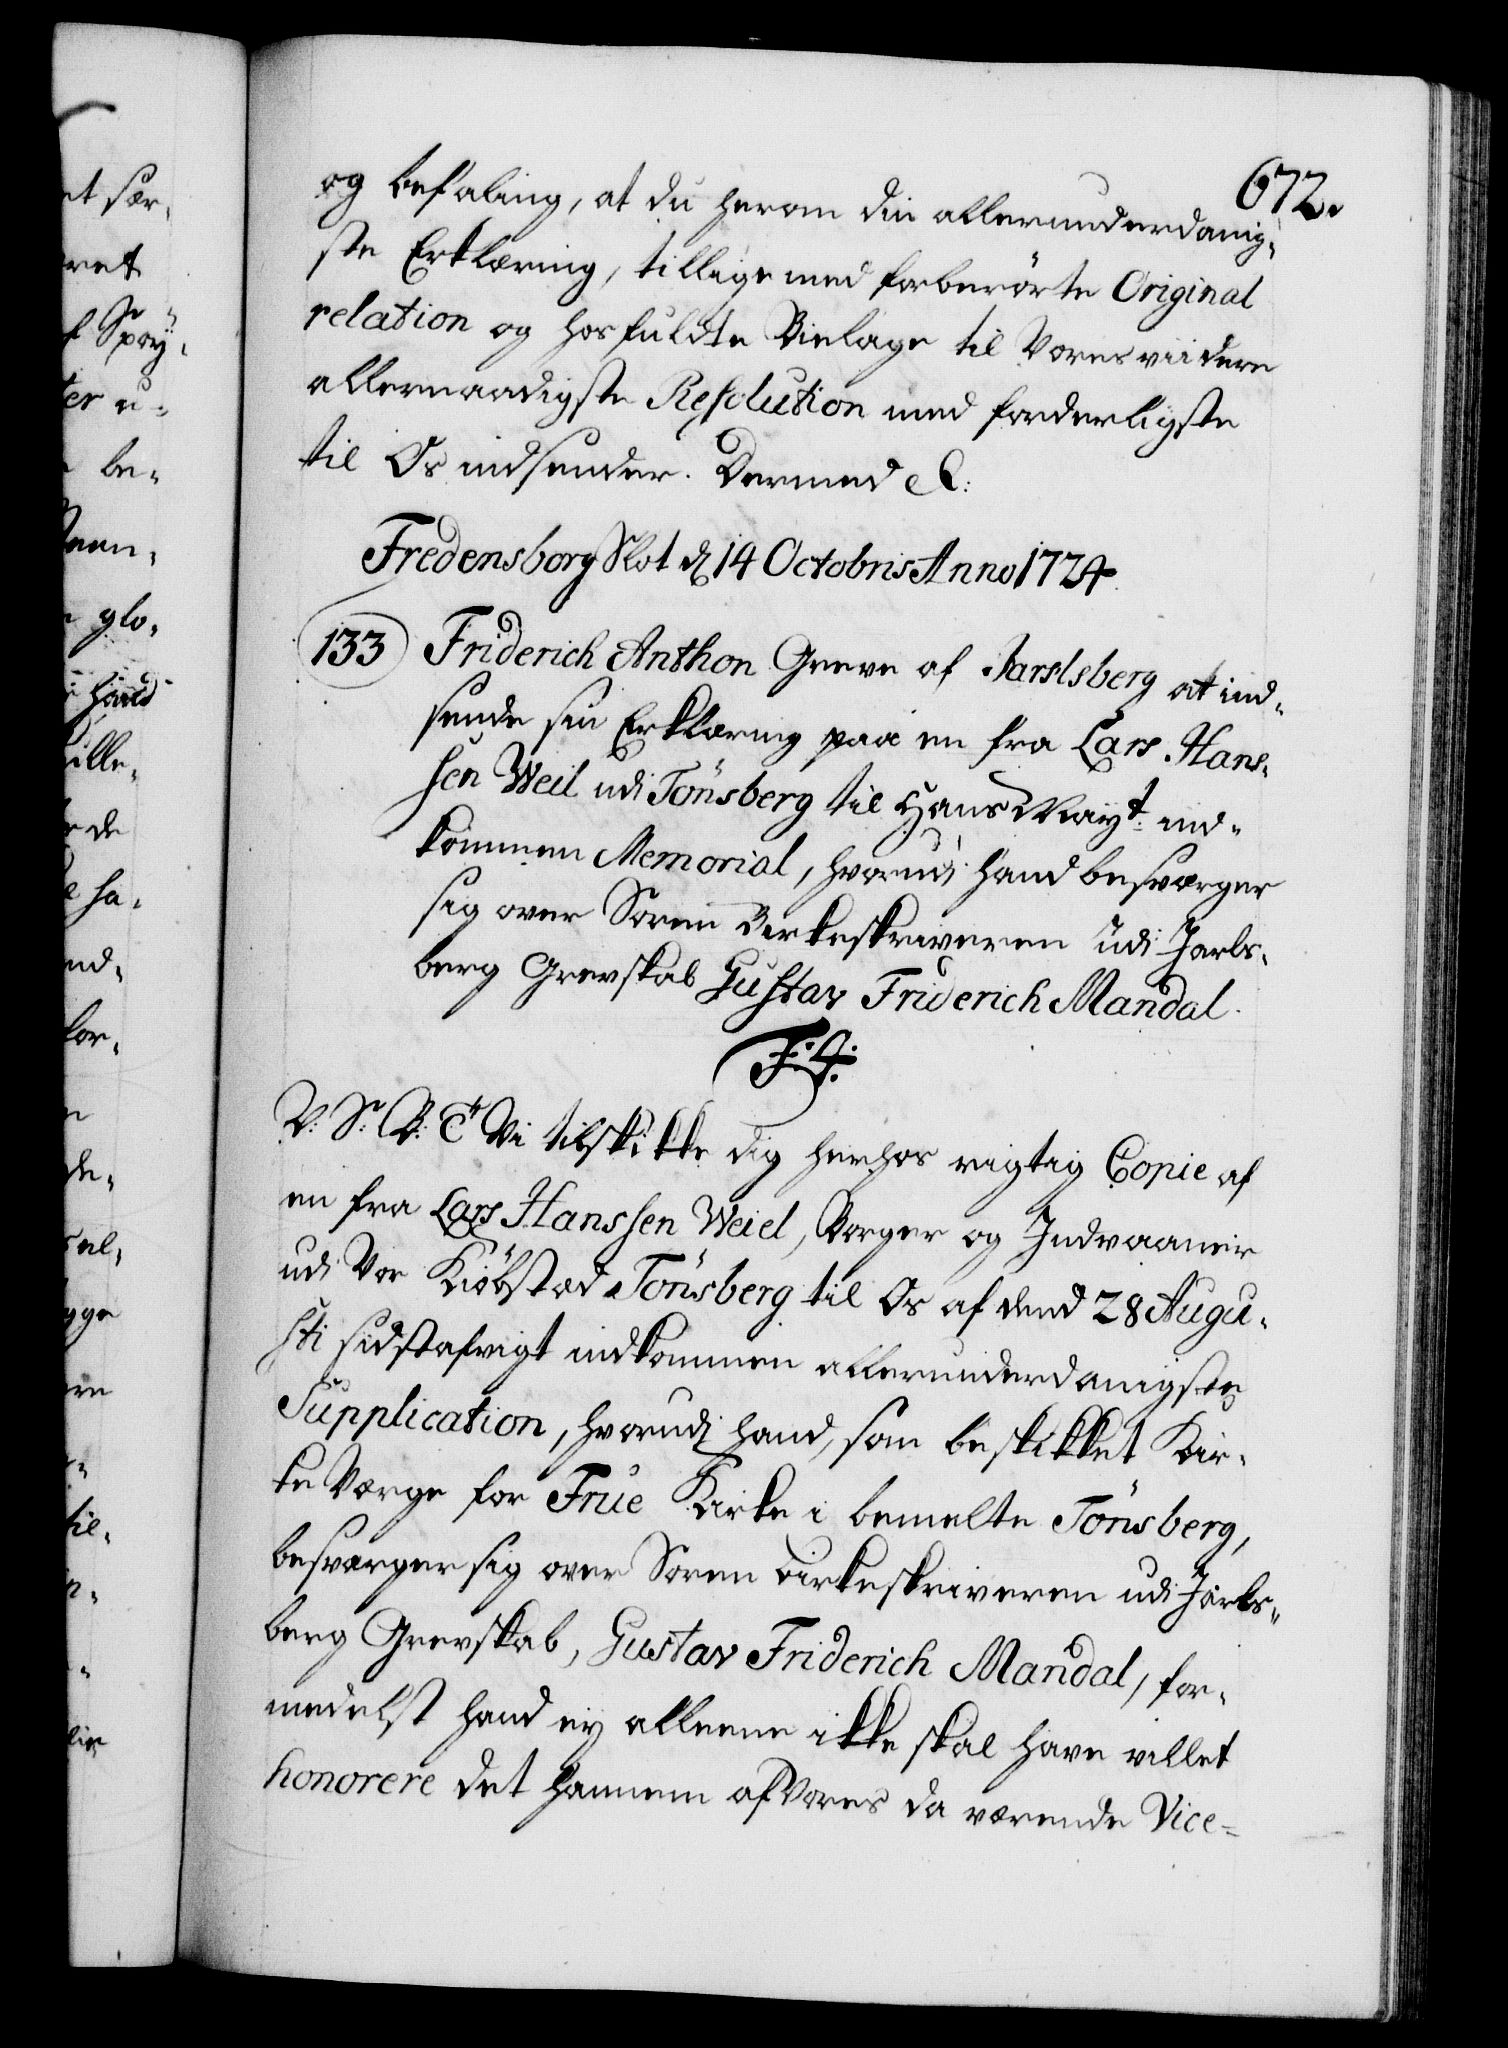 672.
og befaling, at du herom din allerunderdanig-
ste Erklæring, tillige med forberörte Original
relation og hosfuldte Bielage til Vores viidere
allernaadigste Resolution med forderligste
til Os indsender. Dermed &:
Fredensborg Slot d 14 Octobris Anno 1724
133 Friderich Anthon Greve af Jarslsberg at ind-
sende sin Erklæring paa en fra Lars Hans-
sen Weil udi Tönsberg til Hans Mayt ind-
kommen Memorial, hvorudi hand besværger
sig over Soren Birkeskriveren udi Jarls-
berg Grevskab Gustav Friderich Mandal.
F: 4:
V: S: B: Tr Vi tilskikke dig herhos rigtig Copie af
en fra Lars Hanssen Weiel, Borger og Indvaaner
udi Vor Kiöbstad Tönsberg til Os af dend 28 Augu-
sti sidstafvigt indkommen allerunderdanigste
Supplication, hvorudi hand, som beskikket Kir-
ke Værge for Frue Kirke i bemelte Tönsberg,
besværger sig over Soren birkeskriveren udi Jarls-
berg Grevskab, Gustav Friderich Mandal, for-
medelst hand ey alleene ikke skal have villet
honorere det hannem af Vores da værende Vice-
et sær-
ret
f Spöy-
ter u-
be-
glo-
hand
ille-
de
ha-
nd-
for-
de-
sel-
gge
ere
til-